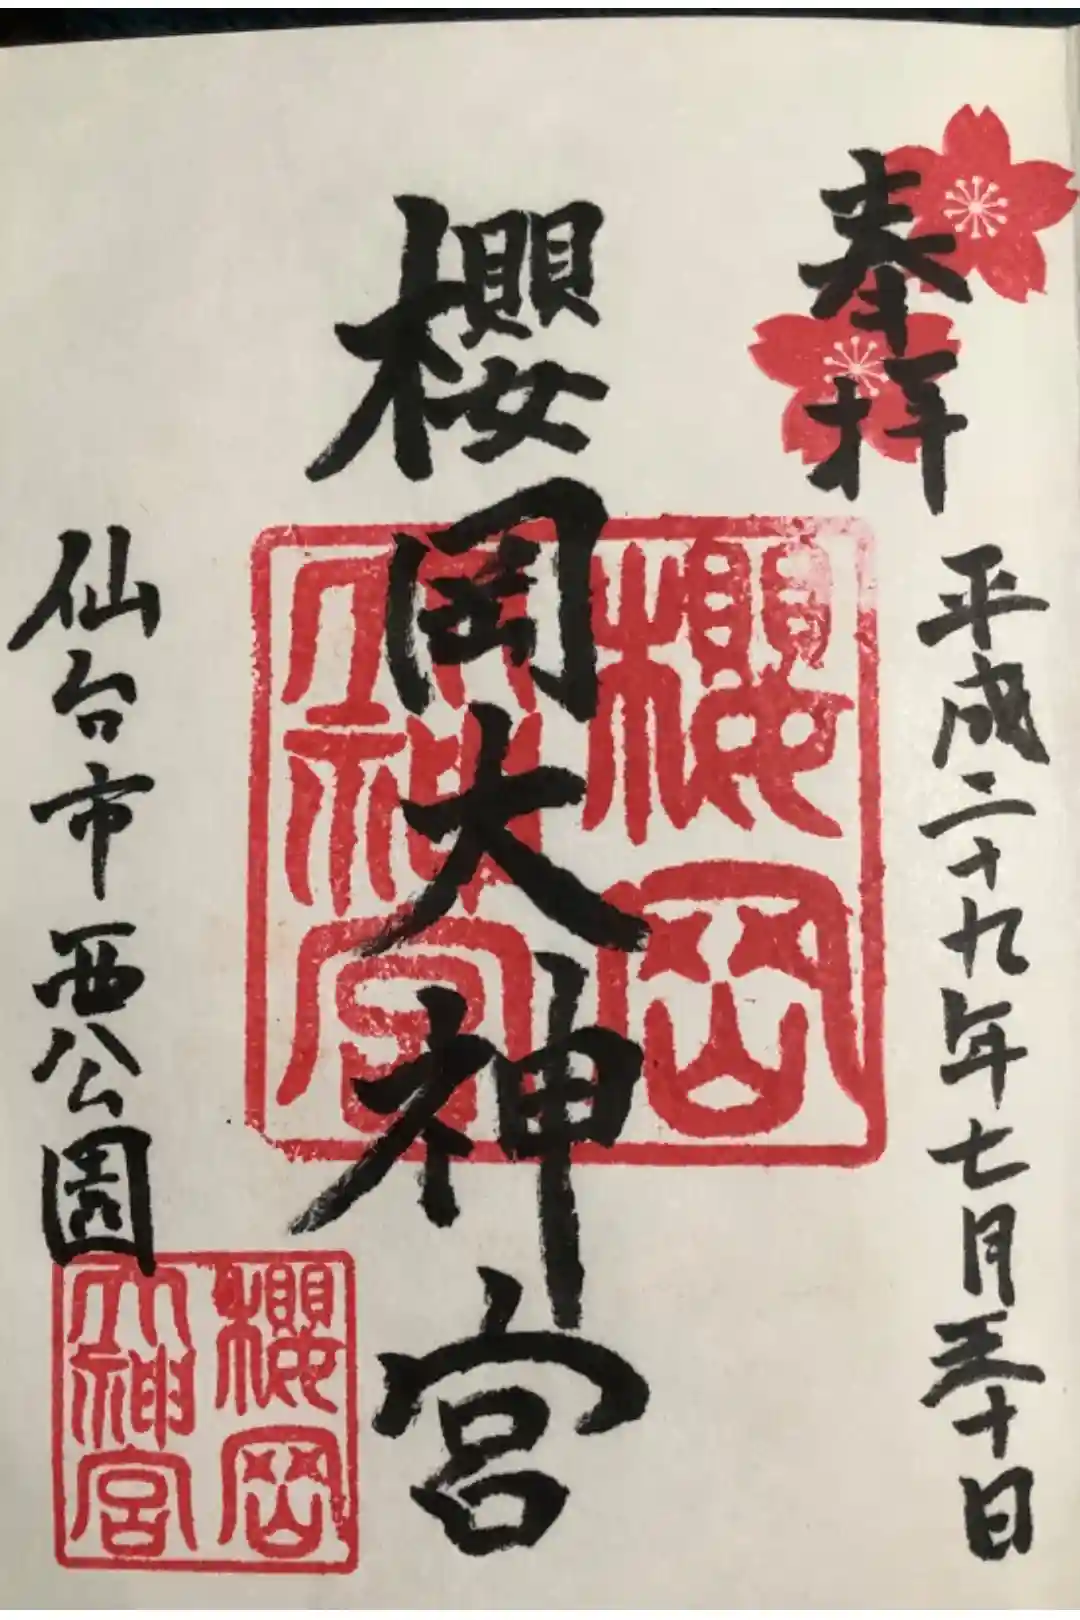 奉拝
平成二十九年七月三十日
櫻岡大神宮
櫻岡
大神宮
仙台市西公園
櫻岡
大神宮